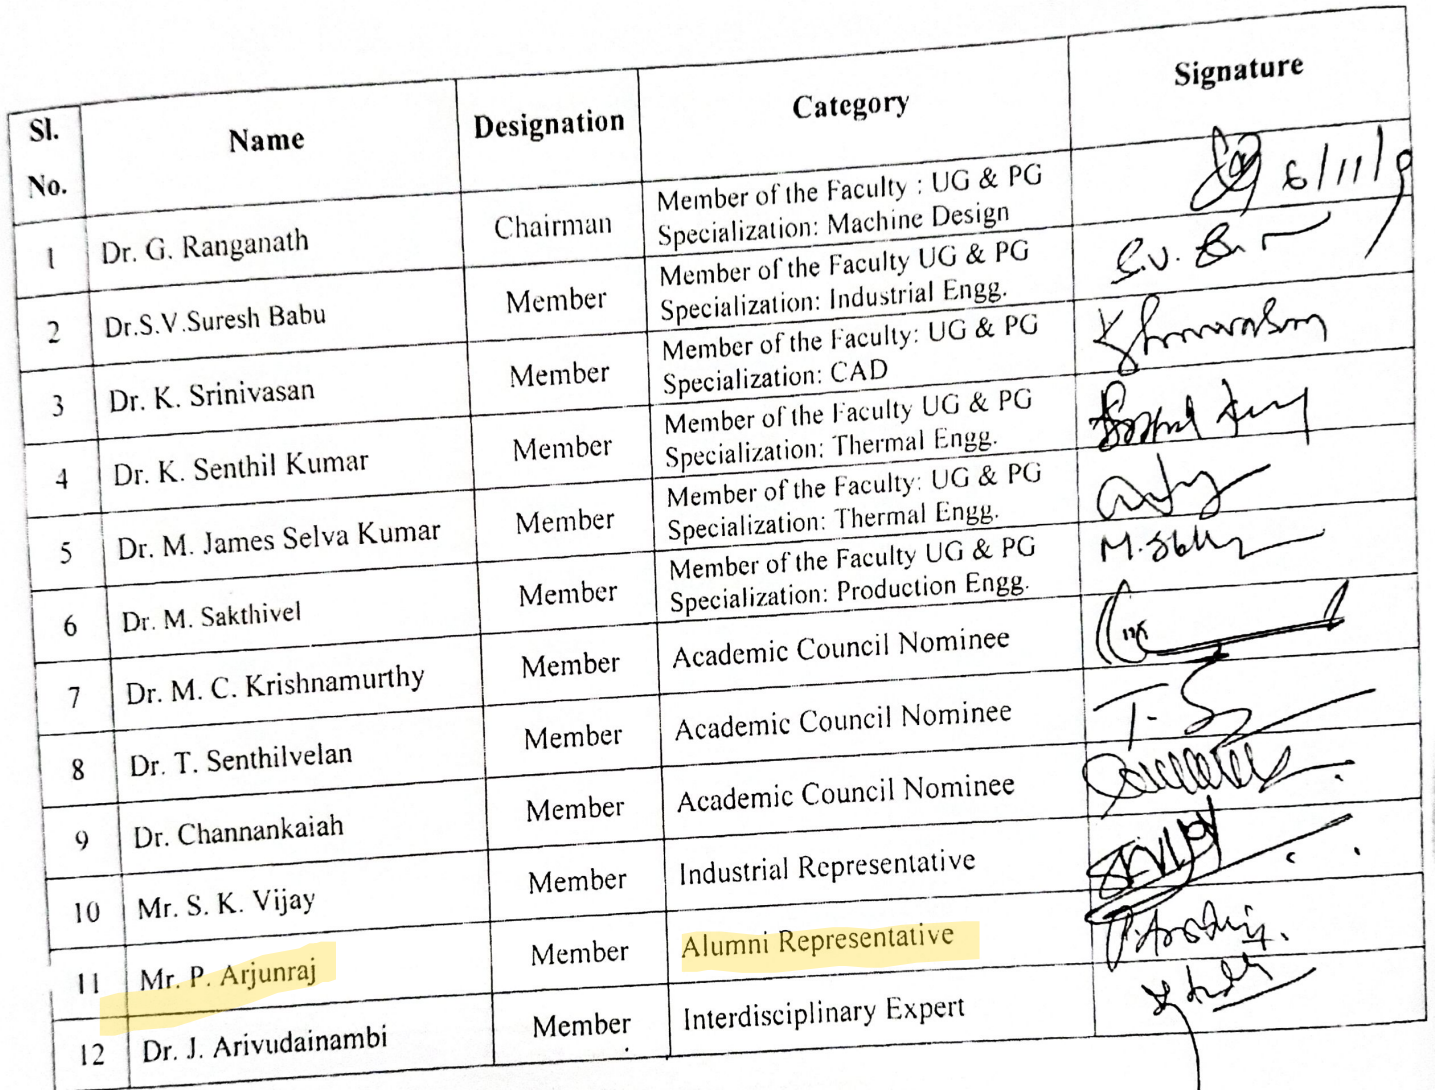 Sl. No. Name Designation Category Signature
1 Dr. G. Ranganath Chairman Member of the Faculty : UG & PG
Specialization: Machine Design
6/11/9
2 Dr.S.V.Suresh Babu Member Member of the Faculty UG & PG
Specialization: Industrial Engg.
S.V.
3 Dr. K. Srinivasan Member Member of the Faculty: UG & PG
Specialization: CAD
4 Dr. K. Senthil Kumar Member Member of the Faculty UG & PG
Specialization: Thermal Engg.
5 Dr. M. James Selva Kumar Member Member of the Faculty: UG & PG
Specialization: Thermal Engg.
6 Dr. M. Sakthivel Member Member of the Faculty UG & PG
Specialization: Production Engg.
7 Dr. M. C. Krishnamurthy Member Academic Council Nominee
8 Dr. T. Senthilvelan Member Academic Council Nominee
9 Dr. Channankaiah Member Academic Council Nominee
10 Mr. S. K. Vijay Member Industrial Representative
11 Mr. P. Arjunraj Member Alumni Representative
12 Dr. J. Arivudainambi Member Interdisciplinary Expert